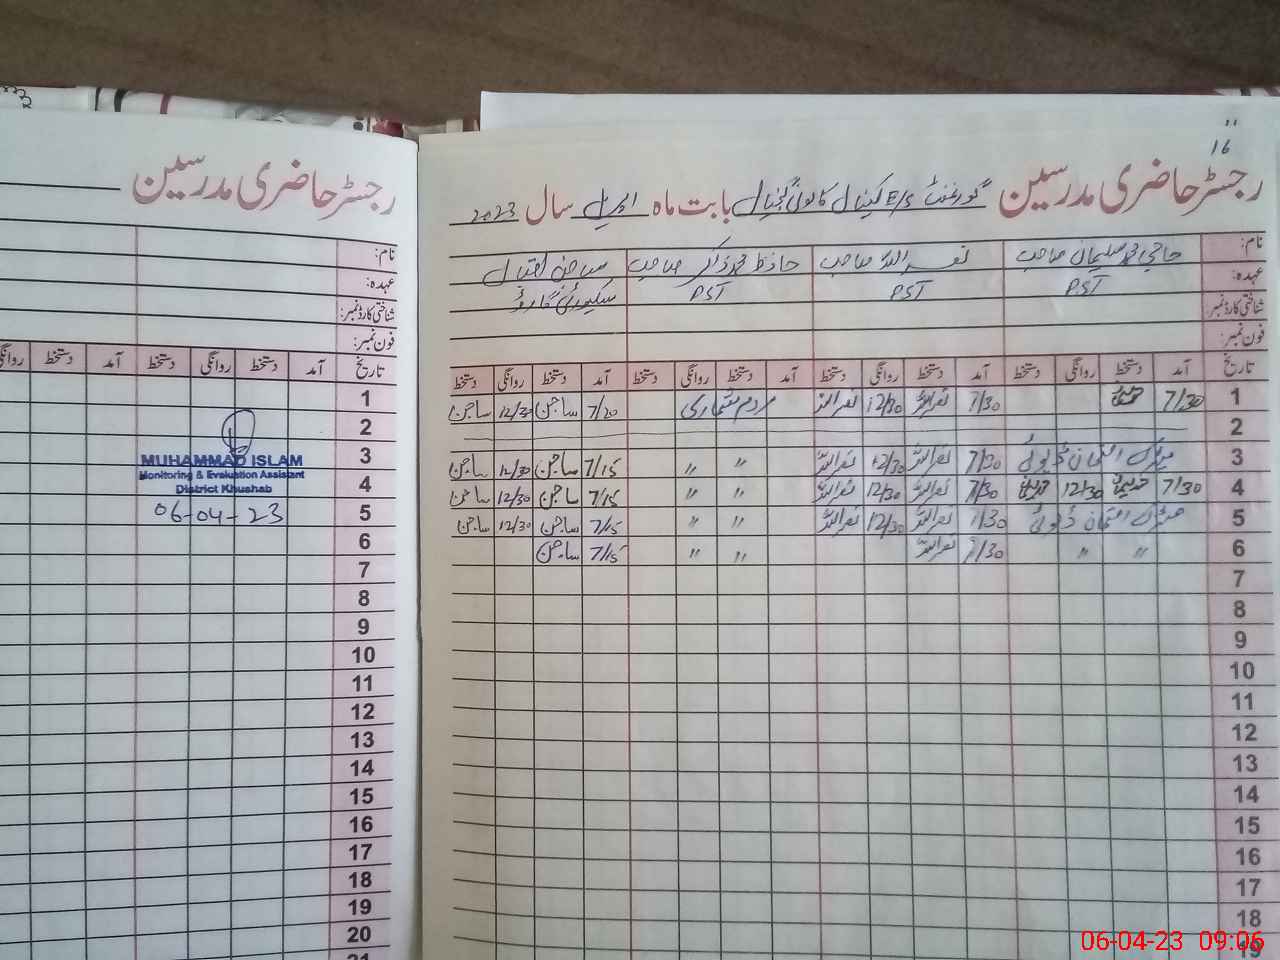 "
16
رجسٹر حاضری مدرسین گورنمنٹ E/S کینال کالونی گنجیال بابت ماہ اپریل سال 2023
نام: حاجی محمد سلیمان صاحب نصراللہ صاحب حافظ محمد ذاکر صاحب
عہدہ: PST PST PST سیکیورٹی گارڈ
شناختی کارڈ نمبر:
فون نمبر:
تاریخ آمد دستخط روانگی دستخط آمد دستخط روانگی دستخط آمد دستخط روانگی دستخط آمد دستخط روانگی دستخط
1 7/30 7/30 نصراللہ 12/30 نصراللہ مردم شماری 7/20 ساجن 12/30 ساجن
2
3 میٹرک امتحان ڈیوٹی 7/30 نصراللہ 12/30 نصراللہ " " 7/15 ساجن 12/30 ساجن
4 7/30 سلیمان 12/30 سلیمان 7/30 نصراللہ 12/30 نصراللہ " " 7/15 ساجن 12/30 ساجن
5 میٹرک امتحان ڈیوٹی 7/30 نصراللہ 12/30 نصراللہ " " 7/15 ساجن 12/30 ساجن
6 " " 7/30 نصراللہ " " 7/15 ساجن
7
8
9
10
11
12
13
14
15
16
17
18
19
رجسٹر حاضری مدرسین
نام:
عہدہ:
شناختی کارڈ نمبر:
فون نمبر:
تاریخ آمد دستخط روانگی دستخط آمد دستخط روانگی
1
2
3
4
5
6
7
8
9
10
11
12
13
14
15
16
17
18
19
20
21
MUHAMMAD ISLAM
Monitoring & Evaluation Assistant
District Khushab
06-04-23
06-04-23 09:06